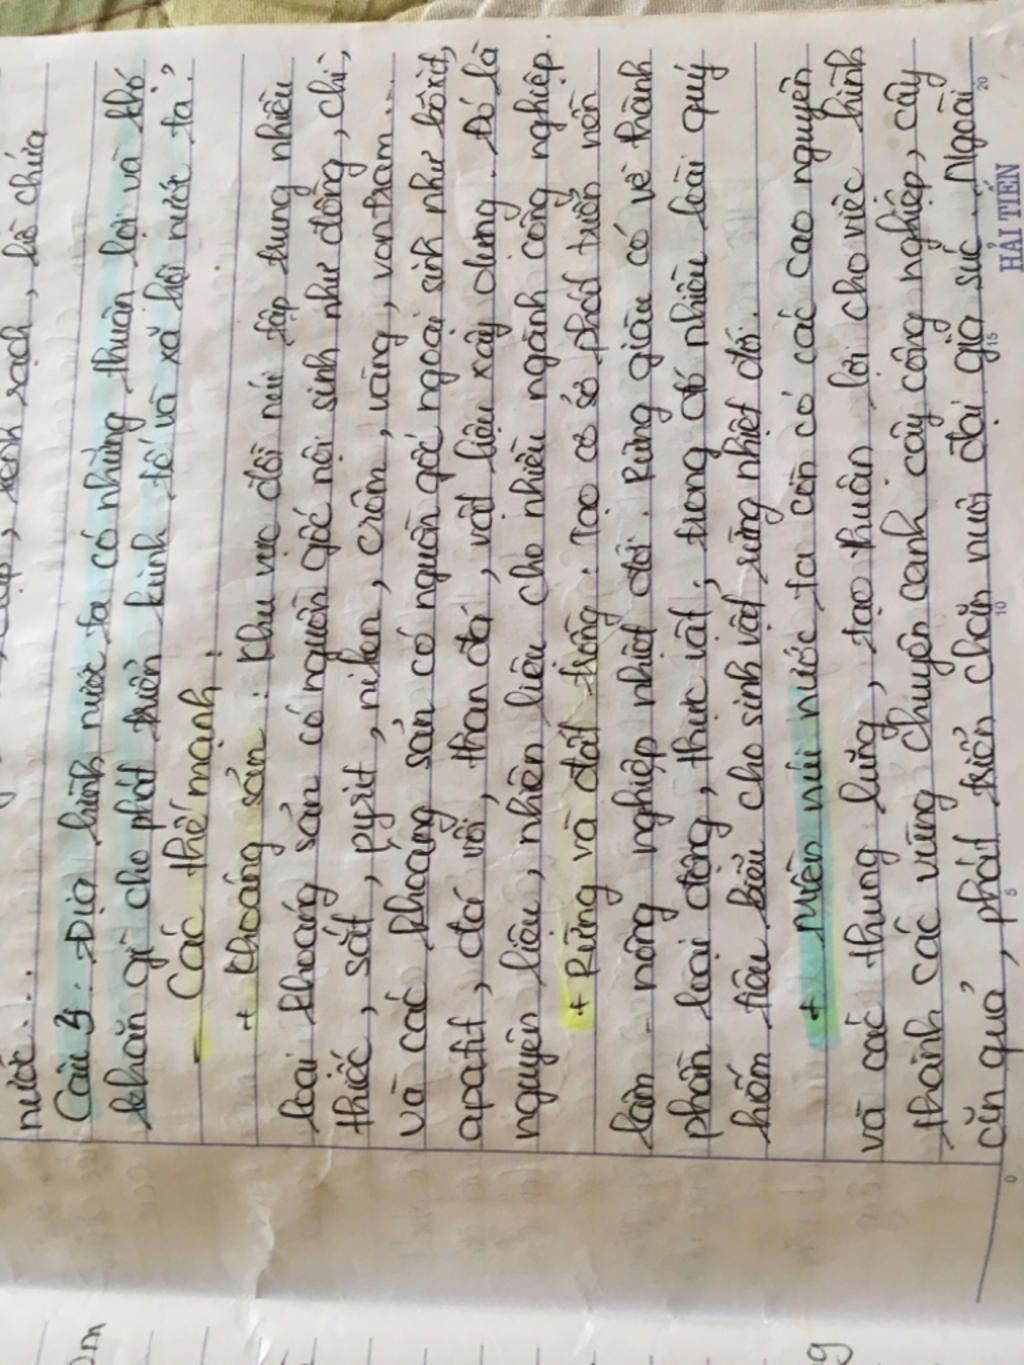 sạch, hồ chứa
nước...
Câu 3: Địa hình nước ta có những thuận lợi và khó
khăn gì cho phát triển kinh tế và xã hội nước ta?
- Các thế mạnh:
+ Khoáng sản: Khu vực đồi núi tập trung nhiều
loại khoáng sản có nguồn gốc nội sinh như đồng, chì,
thiếc, sắt, pyrit, niken, crôm, vàng, vonfram...
và các khoáng sản có nguồn gốc ngoại sinh như bôxit,
apatit, đá vôi, than đá, vật liệu xây dựng. Đó là
nguyên liệu, nhiên liệu cho nhiều ngành công nghiệp.
+ Rừng và đất trồng: Tạo cơ sở phát triển nền
lâm - nông nghiệp nhiệt đới. Rừng giàu có về thành
phần loại động, thực vật; trong đó nhiều loài quý
hiếm tiêu biểu cho sinh vật rừng nhiệt đới.
+ Miền núi nước ta còn có các cao nguyên
và các thung lũng, tạo thuận lợi cho việc hình
thành các vùng chuyên canh cây công nghiệp, cây
ăn quả, phát triển chăn nuôi đại gia súc. Ngoài
0 5 10 15 20
HẢI TIẾN